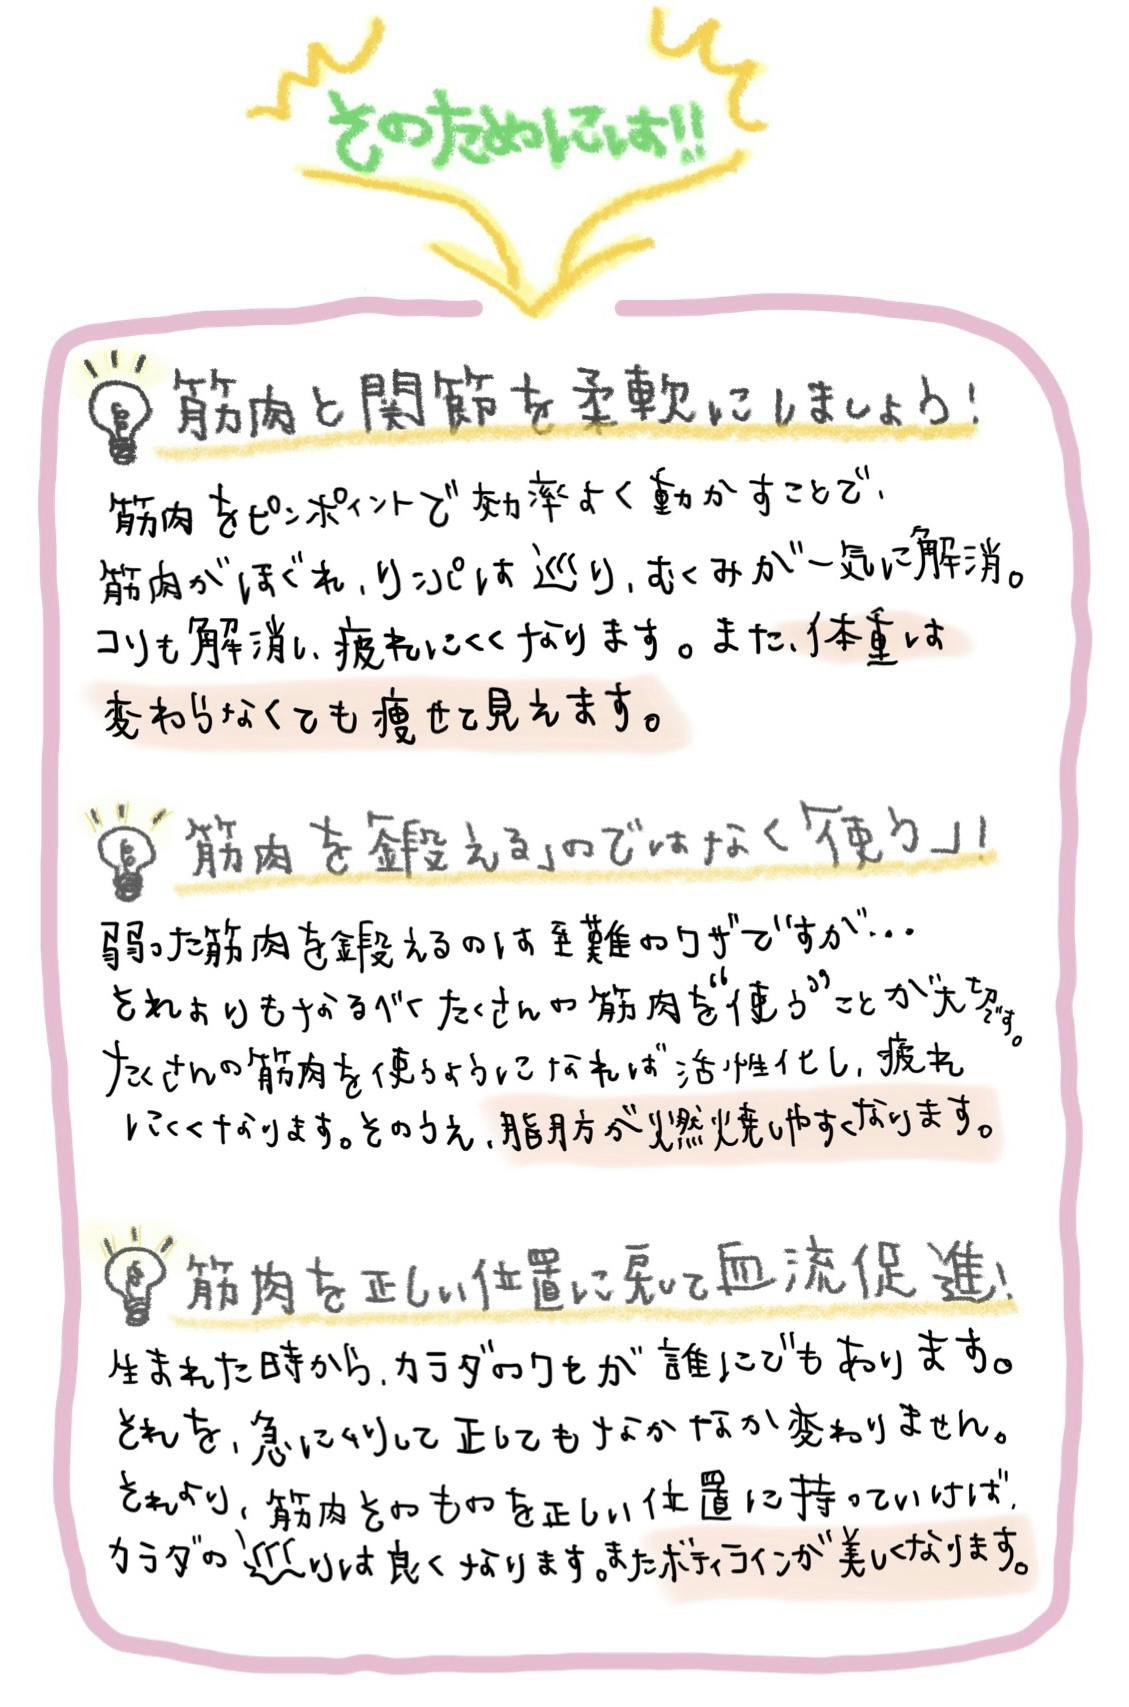 そのためには!!
筋肉と関節を柔軟にしましょう!
筋肉をピンポイントで効率よく動かすことで、
筋肉がほぐれ、リンパは巡り、むくみが一気に解消。
コリも解消し、疲れにくくなります。また、体重は
変わらなくても痩せて見えます。
筋肉を鍛える」のではなく「使う」!
弱った筋肉を鍛えるのは至難のワザですが…
それよりもなるべくたくさんの筋肉を“使う”ことが大切です。
たくさんの筋肉を使うようになれば活性化し、疲れ
にくくなります。そのうえ、脂肪が燃焼しやすくなります。
筋肉を正しい位置に戻して血流促進!
生まれた時から、カラダのクセが誰にでもあります。
それを、急にムリして正してもなかなか変わりません。
それより、筋肉そのものを正しい位置に持っていけば、
カラダの巡りは良くなります。またボディラインが美しくなります。